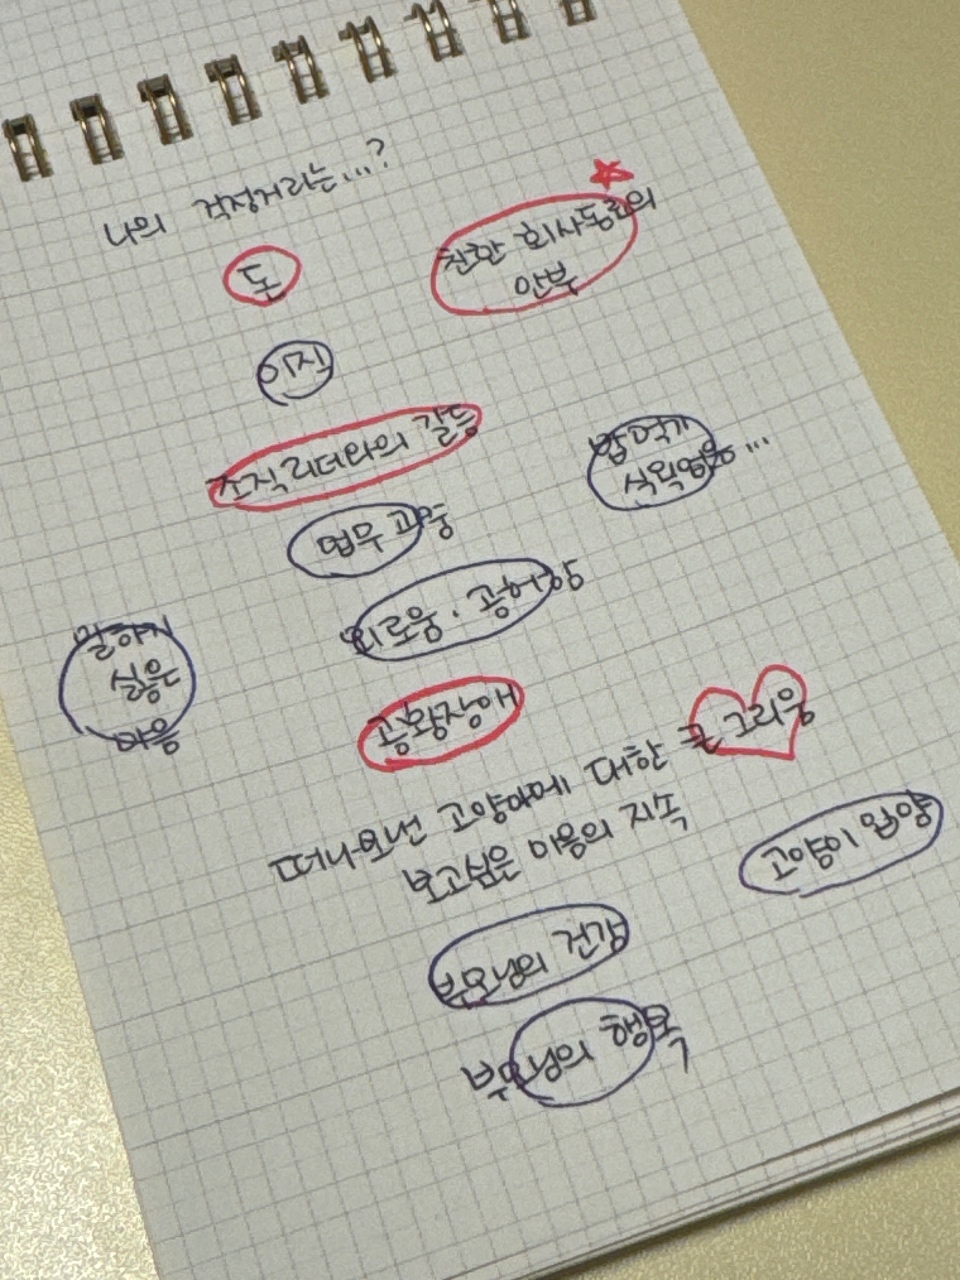 나의 걱정거리는...?
돈
친한 회사동료의
안부
이직
조직리더와의 갈등
밥먹기
식욕없음...
업무 과중
외로움·공허함
일하기
싫은
마음
공황장애
떠나보낸 고양이에 대한 큰 그리움
보고싶은 마음의 지속
고양이 입양
부모님의 건강
부모님의 행복